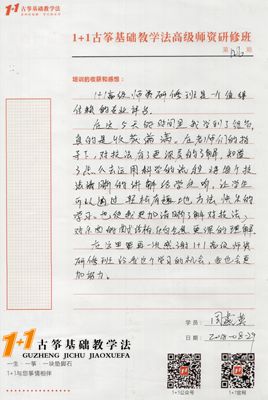 1+1 古筝基础教学法
1+1古筝基础教学法高级师资研修班
第 期
培训的收获和感想：
1+1高级师资研修班是一个值得
信赖的专业平台。
在这5天的时间里我学到了很多，
真的是收获满满。在老师们的指
导下，对技法有了更深层的了解，知道
了怎么去运用科学的流程将每个技
法清晰的讲解给学生听，让学生
可以通过轻松有趣的方法快乐的
学习。也使我更加清晰了解对技法，
对乐曲的 更深的理解
在这里再一次感谢1+1高级师资
研修班给我这个学习的机会，我也会更
加努力。
1+1 古筝基础教学法
GUZHENG JICHU JIAOXUEFA
一生 一筝 一块垫脚石
1+1与您筝情相伴
学员：
日期：2018-08-29
1+1公众号
1+1官网